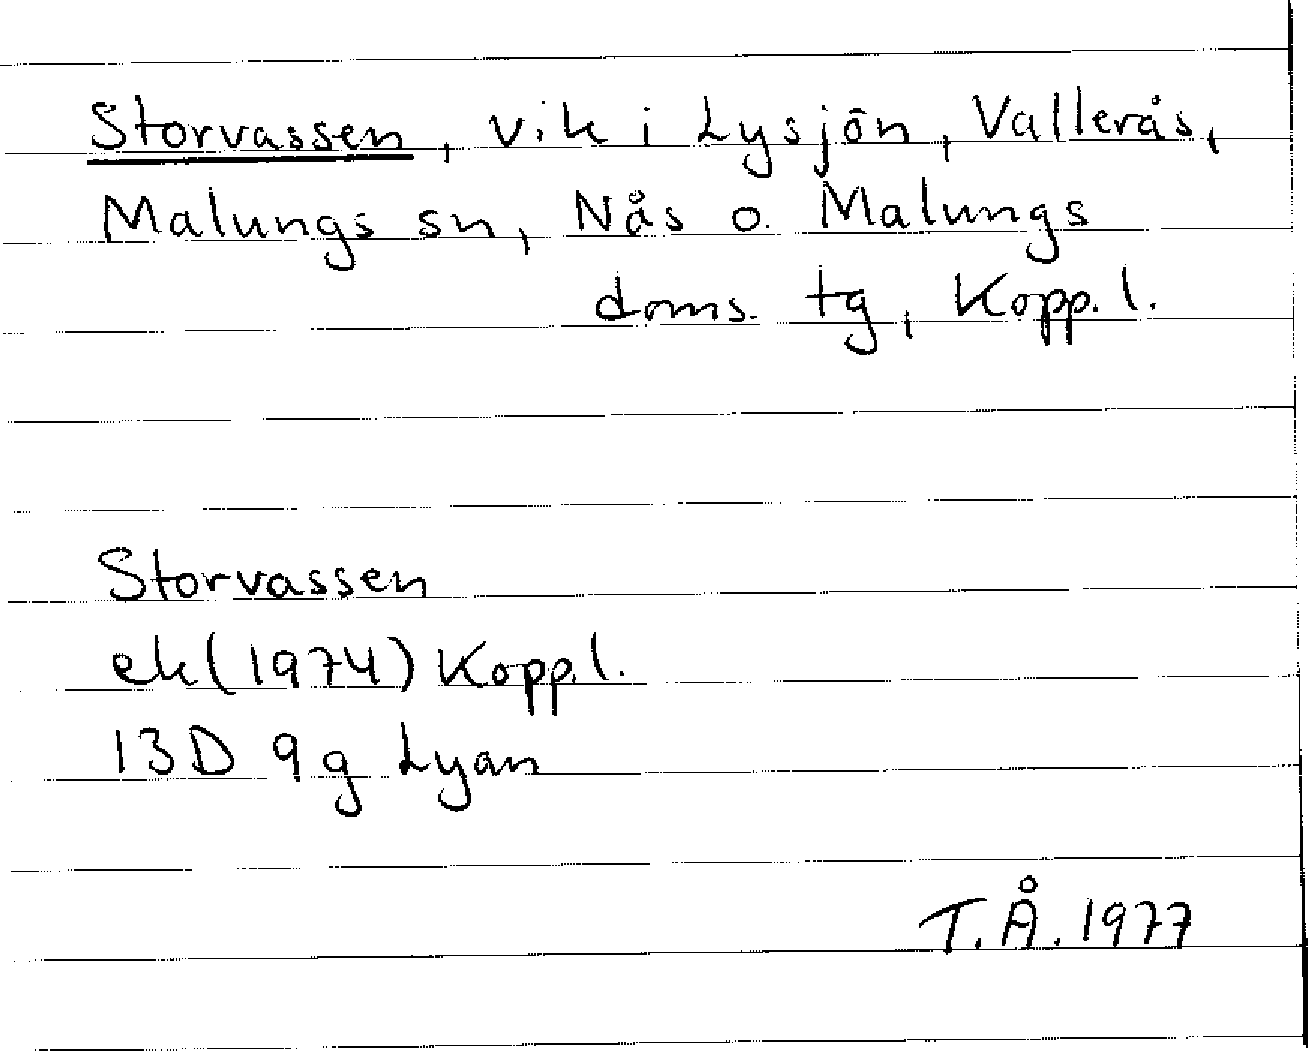 Storvassen, vik i Lysjön, Vallerås,
Malungs sn, Nås o. Malungs
doms. tg, Kopp. l.
Storvassen
ek (1974) Kopp. l.
13D 9g Lyan
T.Å. 1977